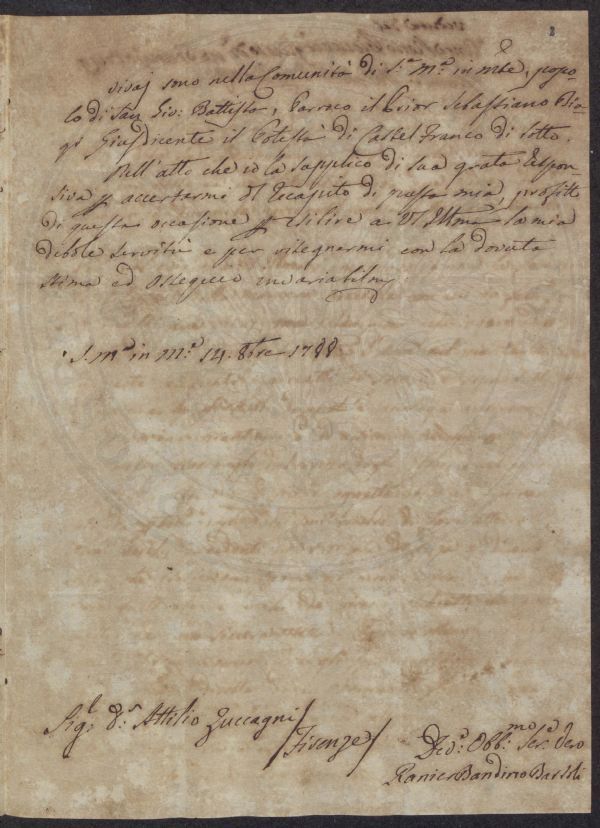 vivaj sono nella Comunità di S.ª M.ª in M.te, popo-
lo di San Gio: Battista, Parroco il Prior Sebastiano Bia-
gi Giusdicente il Potestà di Castel Franco di Sotto.
Nell'atto che io la supplico di sua grata Respon-
siva p accertarmi del recapito di questa mia, profitto
di questa occasione p esibire a VS Ill.ma la mia
debole servitù e per rasegnarmi con la dovuta
stima ed ossequio invariabilm.
S. M.ª in M.e 14. 8bre 1788
Sig.r D.r Attilio Zuccagni /Firenze/
Dev.º Obb.mo Ser.e Vero
Ranier Bandino Bartoli